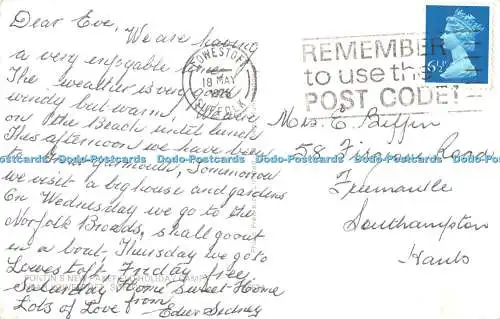 Dear Eve, We are having
a very enjoyable time
The weather is very good
windy but warm, We were
on the Beach until lunch
This afternoon we have been
to Great Yarmouth, Tommorrow
we visit a big house and gardens
On Wednesday we go to the
Norfolk Broads, shall go out
in a boat, Thursday we go to
Lowestoft, Friday free,
Saturday Home Sweet Home
Lots of Love from
Edie Sidney
LOWESTOFT
18 MAY
SUFFOLK
REMEMBER
to use the
POST CODE!
6½P
Mrs E. Beffin
58 Road
Fremantle
Southampton
Hants
PONTIN'S HOLIDAY CAMP
Dodo-Postcards Dodo-Postcards Dodo-Postcards Dodo-Postcards